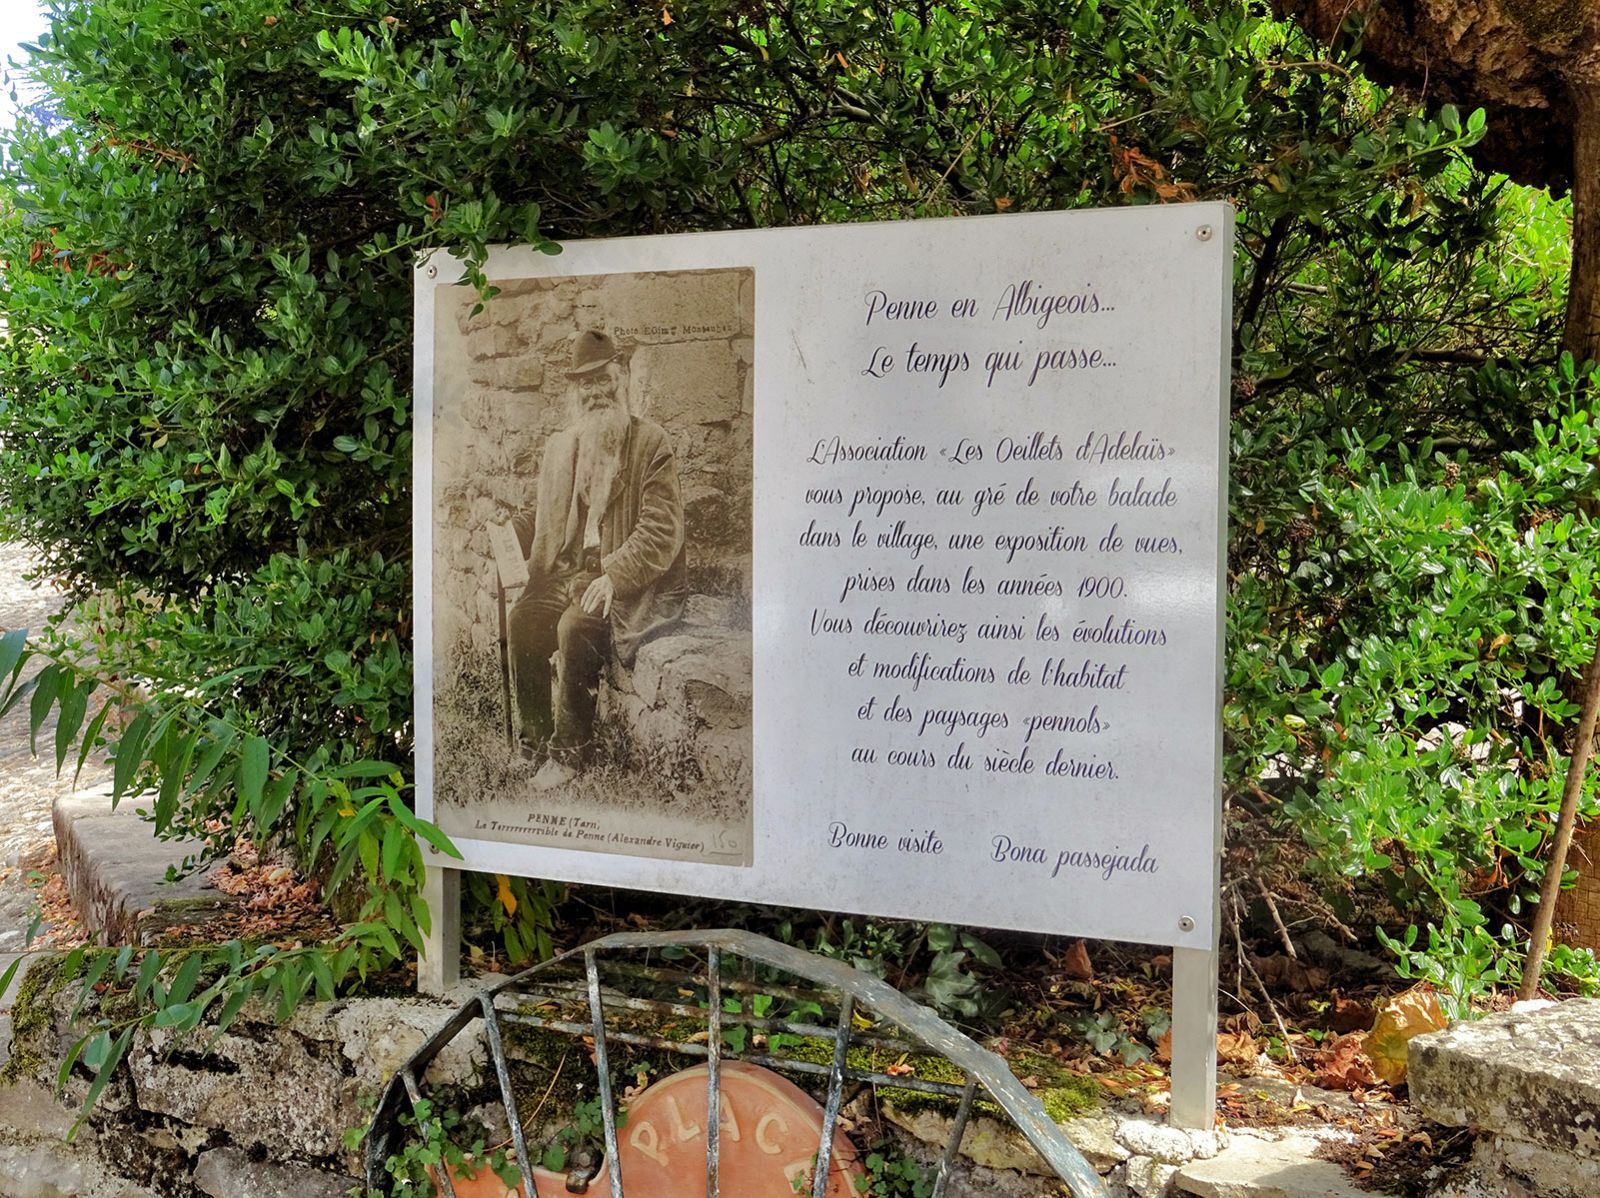 Penne en Albigeois...
Le temps qui passe...
L'Association «Les Oeillets d'Adelaïs»
vous propose, au gré de votre balade
dans le village, une exposition de vues,
prises dans les années 1900.
Vous découvrirez ainsi les évolutions
et modifications de l'habitat
et des paysages «pennols»
au cours du siècle dernier.
Bonne visite Bona passejada
Photo Montauban
PENNE (Tarn)
Le Terrrrrrrrrible de Penne (Alexandre Viguier) 150
PLACE